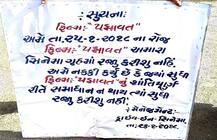 : સૂચના:
ફિલ્મ: "પદ્માવત"
અમે તા.૨૫-૧-૨૦૧૮ ના રોજ
ફિલ્મ: "પદ્માવત" અમારા
સિનેમા ગૃહમાં રજુ કરીશુ નહિ.
અમે નક્કી કર્યું છે કે જ્યાં સુધી
ફિલ્મ: "પદ્માવત" નું શાંતિપૂર્ણ
રીતે સમાધાન ન થાય ત્યાં સુધી
રજુ કરીશુ નહી.
મેનેજમેન્ટ
ડ્રાઇવ-ઇન-સિનેમા.